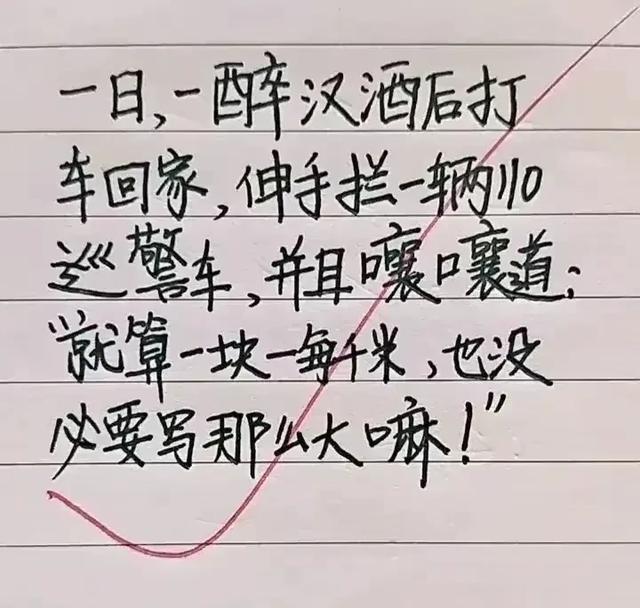 一日,一醉汉酒后打
车回家,伸手拦一辆110
巡警车,并且嚷嚷道:
"就算一块一每千米,也没
必要写那么大嘛!"